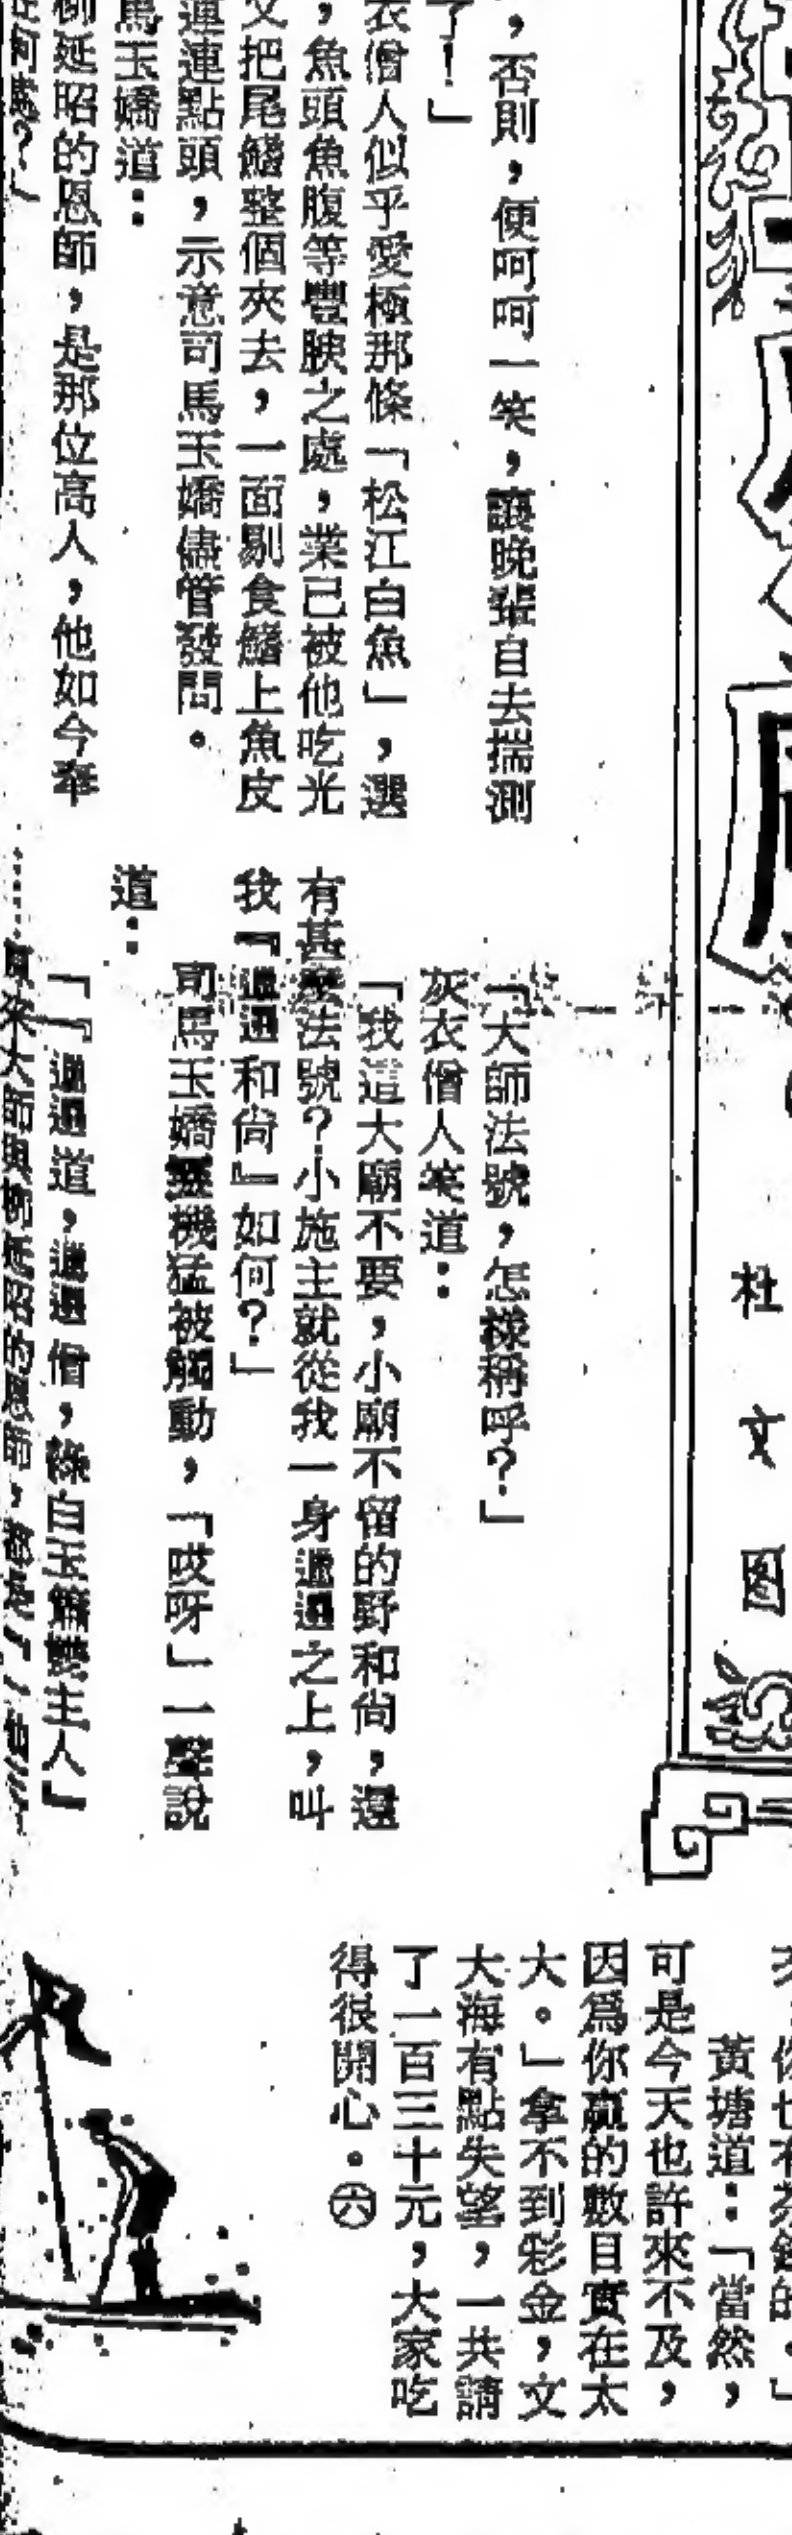 ，否則，便呵呵一笑，讓晚輩自去揣測
了！」
衣僧人似乎愛極那條「松江白魚」，選
，魚頭魚腹等豐腴之處，業已被他吃光
又把尾鰭整個夾去，一面剔食鰭上魚皮
連連點頭，示意司馬玉嬌儘管發問。
馬玉嬌道：
柳延昭的恩師，是那位高人，他如今
在何處？」
「大師法號，怎樣稱呼？」
灰衣僧人笑道：
「我這大廟不要，小廟不留的野和尚，還
有甚麼法號？小施主就從我一身邋遢之上，叫
我『邋遢和尚』如何？」
司馬玉嬌靈機猛被觸動，「哎呀」一聲說
道：
「『邋遢道，邋遢僧，
白玉
雙主人』
……原來大師與柳延昭的恩師，都是『
杜文
图
黃塘道：「當然，
可是今天也許來不及，
因爲你贏的數目實在太
大。」拿不到彩金，文
大海有點失望，一共請
了一百三十元，大家吃
得很開心。㊅